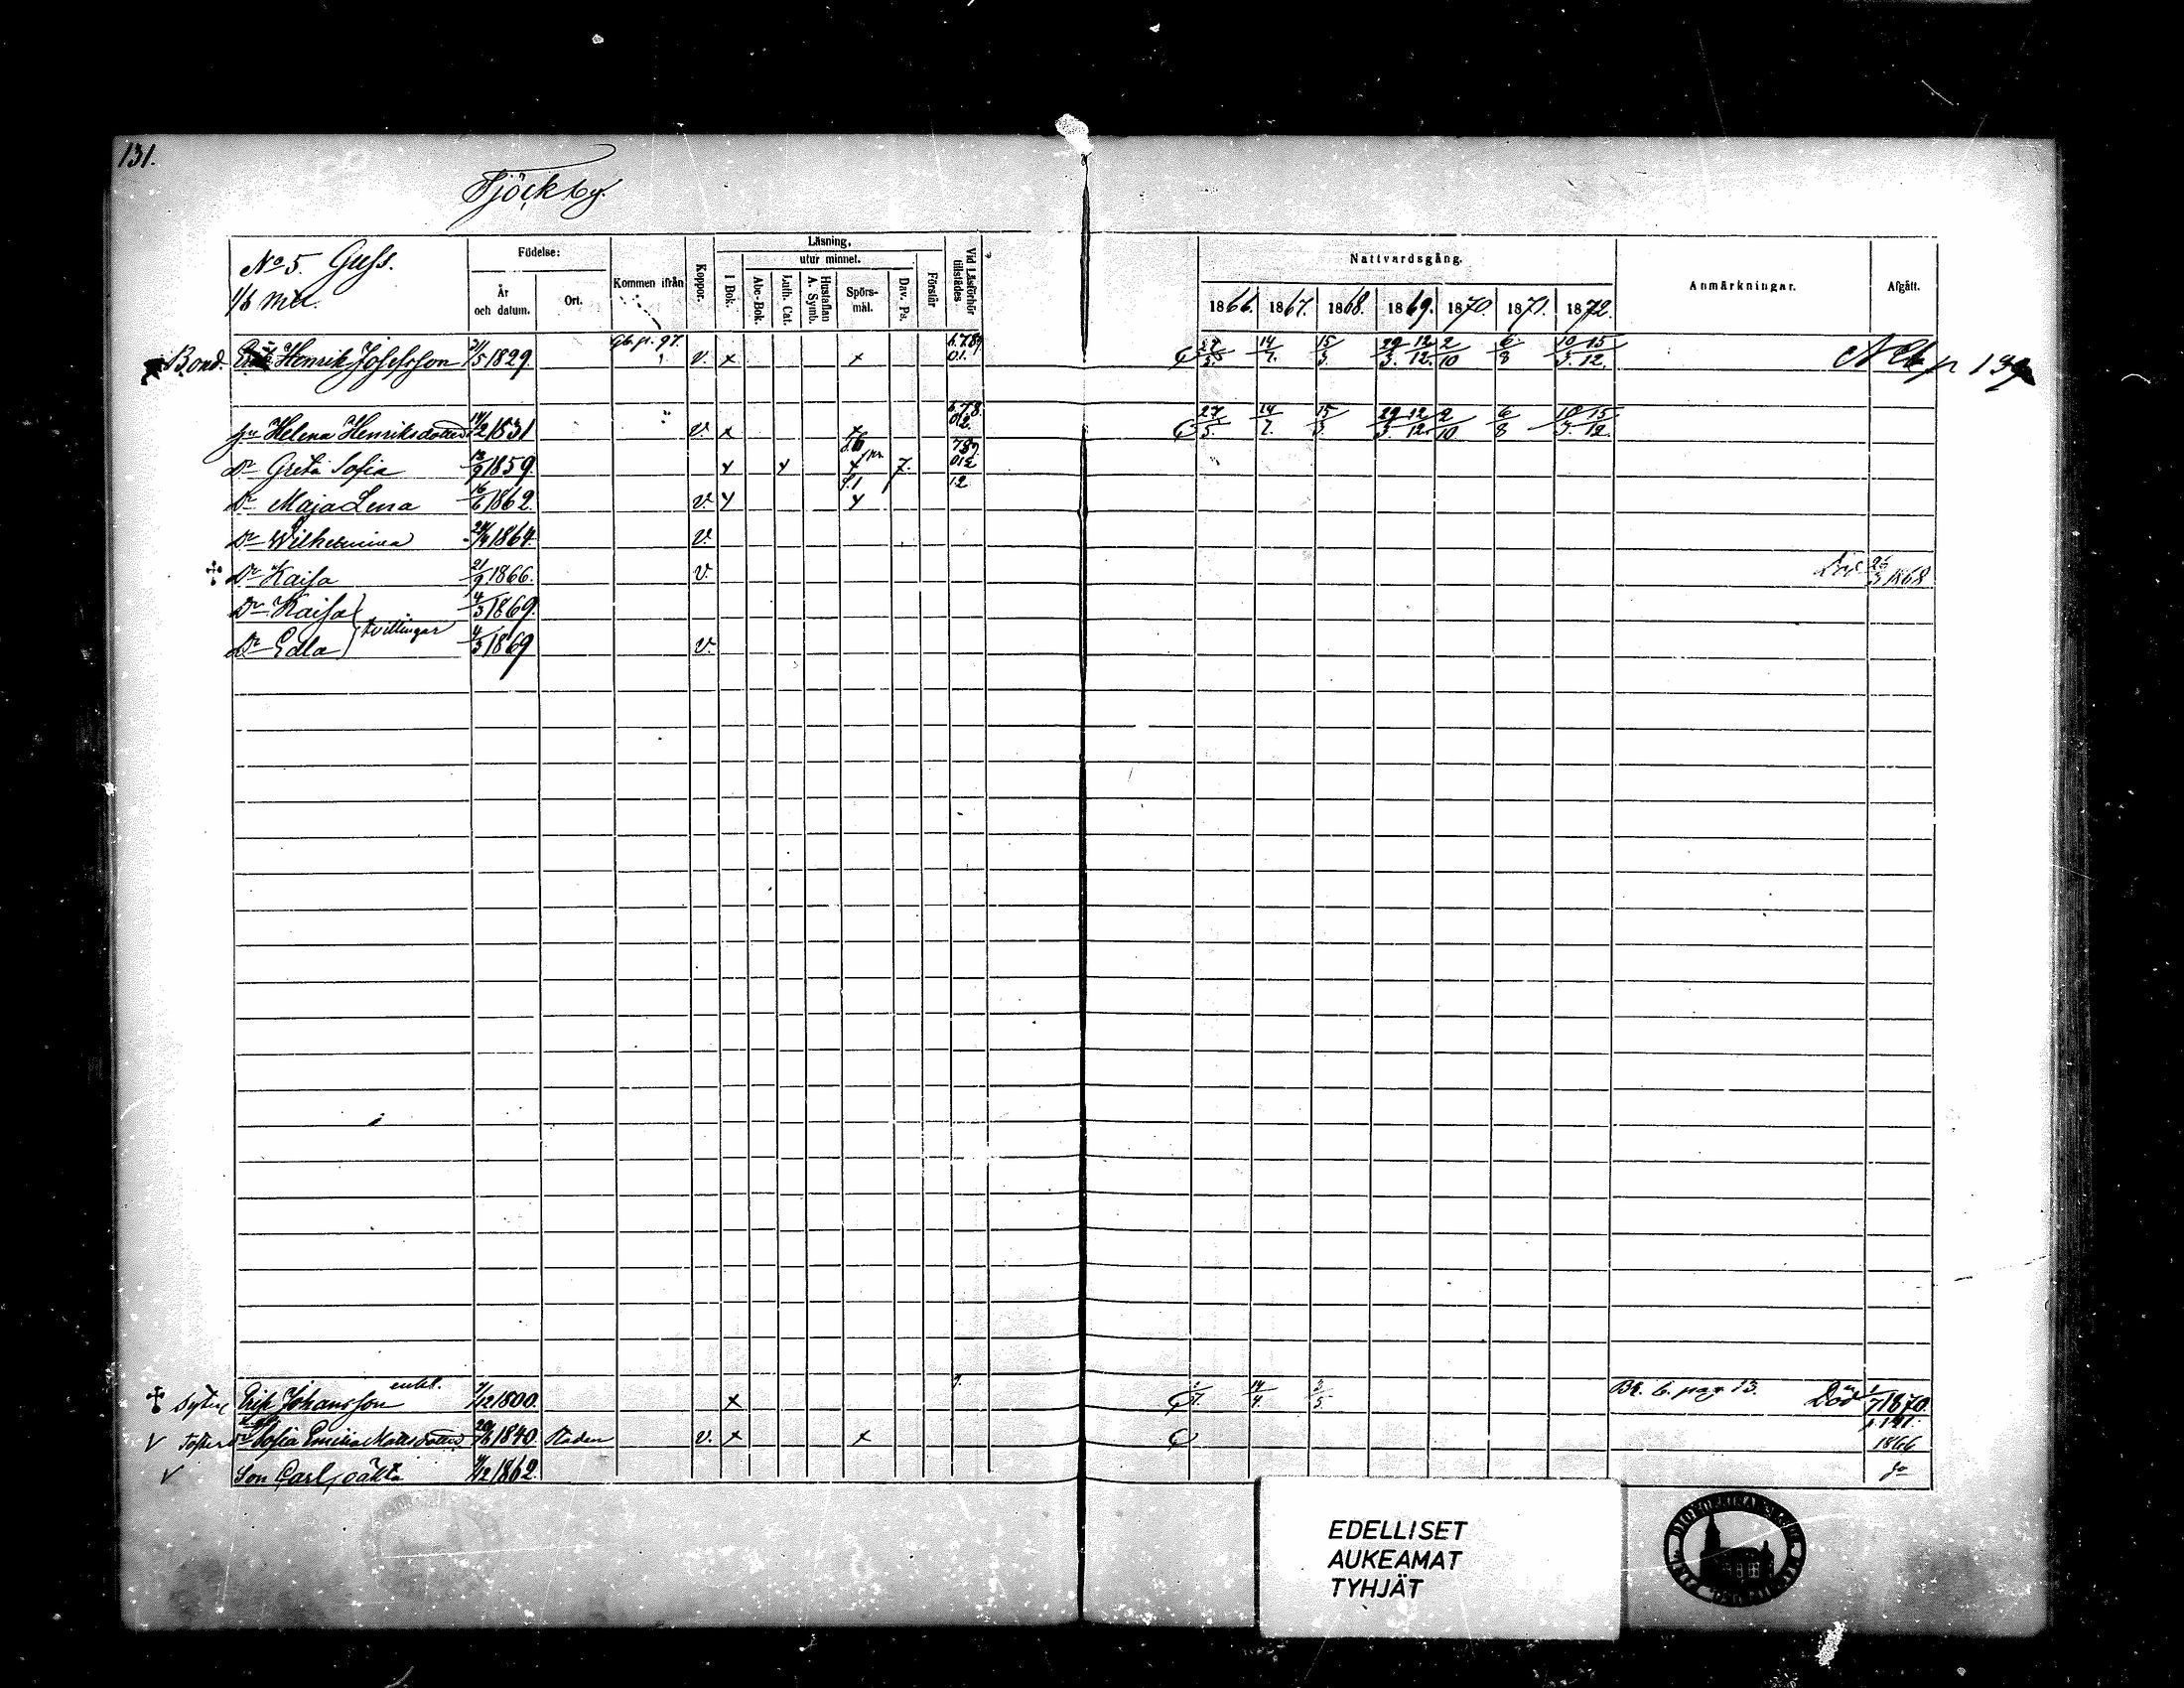 131.
Tjöckby.
No 5. Guss.
1/6 mtl.
Födelse:
År och datum.
Ort.
Kommen ifrån
Koppor.
Läsning,
utur minnet.
I Bok.
Abc-Bok.
Luth. Cat.
Hustaflan A. Symb.
Spörs-mål.
Dav. Ps.
Förstår
Vid Läsförhör tillstädes
Nattvardsgång.
1866. 1867. 1868. 1869. 1870. 1871. 1872.
Anmärkningar.
Afgått.
Bond. Henrik Josefsson 21/5 1829. Gb. p. 97. v. x x 27/5. 14/7. 15/3. 29/3. 12/12. 2/10 6/8 10/3. 15/12.
hu Helena Henriksdotter 14/2 1831 v. x x 27/5. 14/7. 15/3. 29/3. 12/12. 2/10. 6/8 10/3. 15/12.
Dr Greta Sofia 12/9 1859. x x x 7.
Dr Maja Lena 16/6 1862. v. x x 12
Dr Wilhelmina 24/4 1864. v.
Dr Kaisa 21/9 1866. v. Död 26/3 1868
Dr Kaisa 4/3 1869.
tvillingar
Dr Edla 4/3 1869 v.
Sytn. Erik Johansson enkl. 1/12 1800. x 14/4. Bd. 6. pag. 13. Död 1/7 1870.
Sofia Emilia Mattsdotter 1840 Staden v. x x p. 141. 1866
Son Carl, oäkta /12 1862. Jo
EDELLISET
AUKEAMAT
TYHJÄT